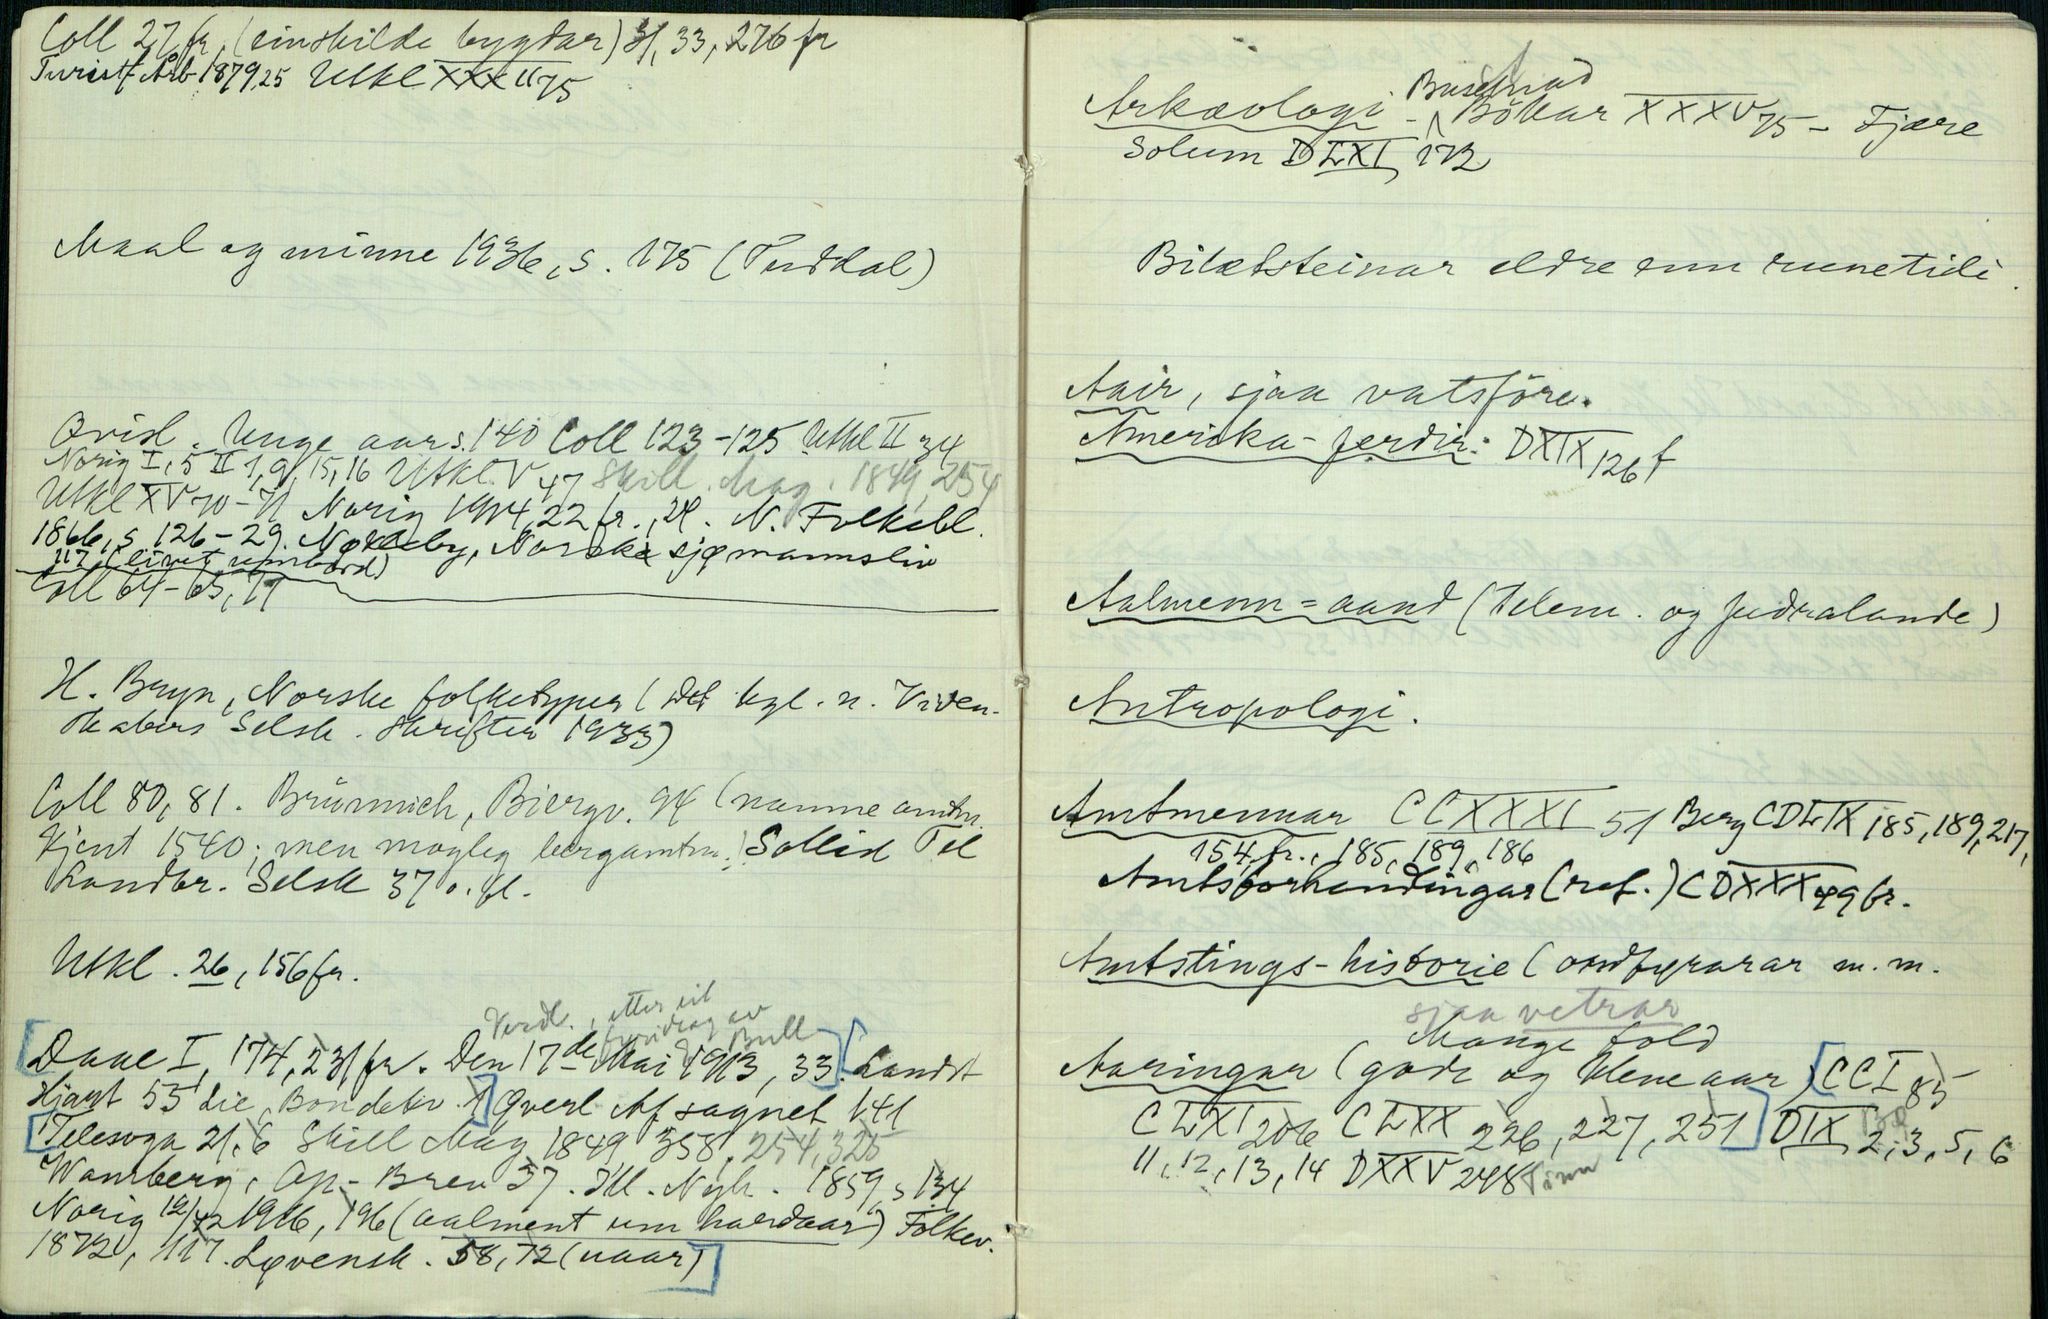 Coll 27 fr, (einskilde bygdar) 31, 33, 276 fr
Turistf. Årb 1879,25 Utkl XXXII 75
Maal og minne 1936, s. 175 (Tuddal)
Qvisl. Unge aar s. 140 Coll 123-125 Utkl II 34
Norig I, 5 II 1, 9, 15, 16 Utkl. V 47 Skill. Mag. 1849, 254
Utkl XV 70-71 Norig 1914, 22 fr., 28. N. Folkebl.
1866, s 126-29. Nørdeby, Norske sjømannsliv
117 (livet umbord)
Coll 64-65, 71
H. Bryn, Norske folketyper (Det kgl. n. Viden-
skabers Selsk. Skrifter 1933)
Coll 80, 81. Brünnich, Biergv. 94 (namne amtm.
kjent 1540; men mogleg bergamtm.) Sollid Tel
Landbr. Selsk 37 o. fl.
Utkl. 26, 156 fr.
Verdl., etter eit
fyredrag av
E. Bull
[Daae I, 174, 231 fr. Den 17de Mai 1913, 33.] [Landst
Hjart 53 Lie, Bondekv. X] Qverl Af sagnet 141
[Telesoga 21. 6 Skill Mag 1849 358, 254, 325
Wamberg, Op-Brev 37. Ill. Nyh. 1859, s 134
Norig 12/12 1916, 196 (aalment um hardaar) Folkev.
1872, 117. Løvensk. 58, 72 (uaar)]
Arkæologi - Buskerud Bökar XXXV 75 - Fjære
Solum DLXI 172
Bilætsteinar eldre enn runetidi.
Aair, sjaa vatsföre.
Amerika-ferdir: DXIX 126 f
Aalmenn-aand (Telem. og fedralande)
Antropologi.
Amtmennar CCXXXI 51 Berg CDLIX 185, 189, 217,
154 fr., 185, 189, 186
Amtsforhandlingar (ref.) CDXXX 49 fr.
Amtstings-historie (ordfyrarar m.m.
sjaa vetrar
Mange fold
Aaringar (gode og klene aar) [CCI 85
CLXI 206 CLXX 226, 227, 251] DIX Bø 2, 3, 5, 6
11, 12, 13, 14 DXXV 248 Tinn